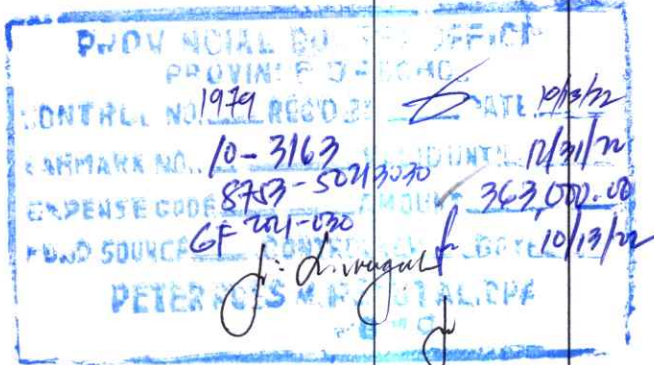 PROVINCIAL BUDGET OFFICE
PROVINCE OF BOHOL
CONTROL NO. 1979 REC'D BY DATE 10/13/22
EARMARK NO. 10-3163 VALID UNTIL 12/31/22
EXPENSE CODE 8753-50213030 AMOUNT 363,000.00
FUND SOURCE GF 2021-030 DATE 10/13/22
PETER